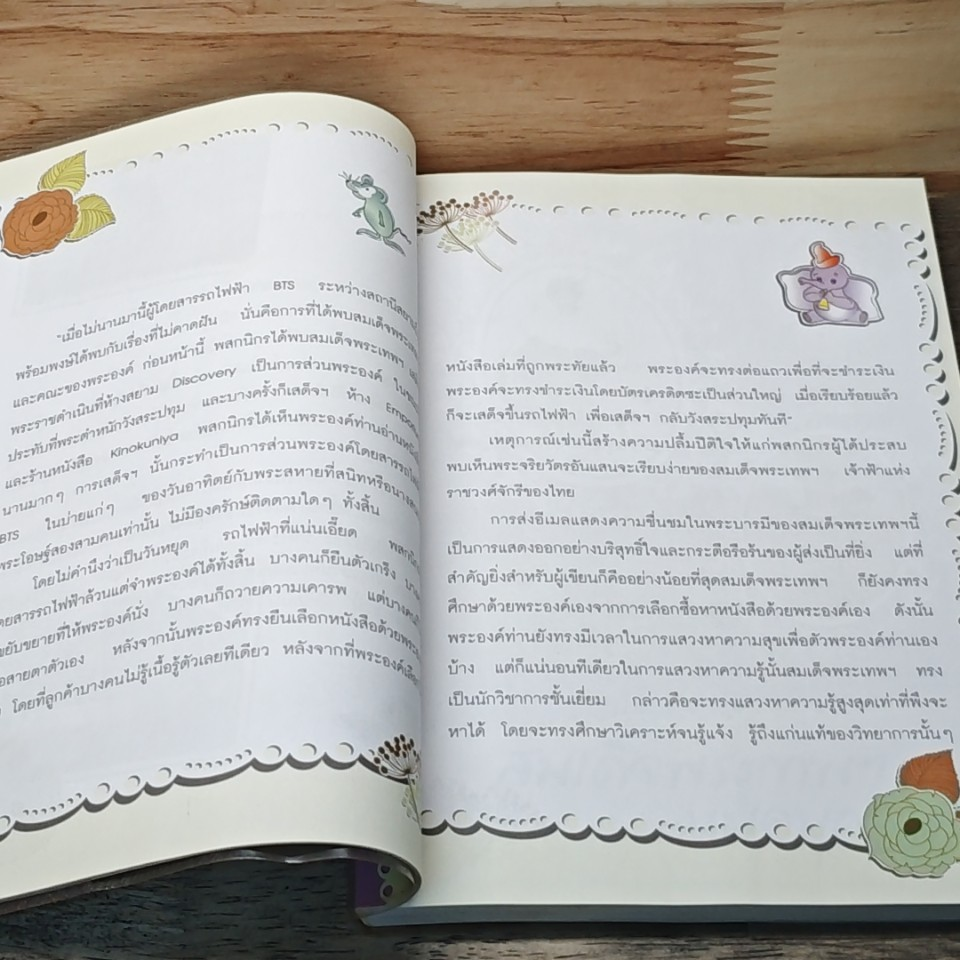 "เมื่อไม่นานมานี้ผู้โดยสารรถไฟฟ้า BTS ระหว่างสถานีสยาม
พร้อมพงษ์ได้พบกับเรื่องที่ไม่คาดฝัน นั่นคือการที่ได้พบสมเด็จพระเทพ
และคณะของพระองค์ ก่อนหน้านี้ พสกนิกรได้พบสมเด็จพระเทพฯ
พระราชดำเนินที่ห้างสยาม Discovery เป็นการส่วนพระองค์
ประทับที่พระตำหนักวังสระปทุม และบางครั้งก็เสด็จฯ ห้าง
และร้านหนังสือ Kinokuniya พสกนิกรได้เห็นพระองค์ท่านอ่านหนังสือ
นานมากๆ การเสด็จฯ นั้นกระทำเป็นการส่วนพระองค์โดยสารรถไฟ
BTS ในบ่ายแก่ๆ ของวันอาทิตย์กับพระสหายที่สนิทหรือนาง
พระโอษฐ์สองสามคนเท่านั้น ไม่มีองครักษ์ติดตามใดๆ ทั้งสิ้น
โดยไม่คำนึงว่าเป็นวันหยุด รถไฟฟ้าที่แน่นเอี๊ยด
โดยสารรถไฟฟ้าล้วนแต่จำพระองค์ได้ทั้งสิ้น บางคนก็ยืนตัวเกร็ง
ขยับขยายที่ให้พระองค์นั่ง บางคนก็ถวายความเคารพ แต่บางคน
สายตาตัวเอง หลังจากนั้นพระองค์ทรงยืนเลือกหนังสือด้วยพระ
โดยที่ลูกค้าบางคนไม่รู้เนื้อรู้ตัวเลยทีเดียว หลังจากที่พระองค์เลือก
หนังสือเล่มที่ถูกพระทัยแล้ว พระองค์จะทรงต่อแถวเพื่อที่จะชำระเงิน
พระองค์จะทรงชำระเงินโดยบัตรเครดิตซะเป็นส่วนใหญ่ เมื่อเรียบร้อยแล้ว
ก็จะเสด็จขึ้นรถไฟฟ้า เพื่อเสด็จฯ กลับวังสระปทุมทันที"
เหตุการณ์เช่นนี้สร้างความปลื้มปีติใจให้แก่พสกนิกรผู้ได้ประสบ
พบเห็นพระจริยวัตรอันแสนจะเรียบง่ายของสมเด็จพระเทพฯ เจ้าฟ้าแห่ง
ราชวงศ์จักรีของไทย
การส่งอีเมลแสดงความชื่นชมในพระบารมีของสมเด็จพระเทพฯนี้
เป็นการแสดงออกอย่างบริสุทธิ์ใจและกระตือรือร้นของผู้ส่งเป็นที่ยิ่ง แต่ที่
สำคัญยิ่งสำหรับผู้เขียนก็คืออย่างน้อยที่สุดสมเด็จพระเทพฯ ก็ยังคงทรง
ศึกษาด้วยพระองค์เองจากการเลือกซื้อหาหนังสือด้วยพระองค์เอง ดังนั้น
พระองค์ท่านยังทรงมีเวลาในการแสวงหาความสุขเพื่อตัวพระองค์ท่านเอง
บ้าง แต่ก็แน่นอนทีเดียวในการแสวงหาความรู้นั้นสมเด็จพระเทพฯ ทรง
เป็นนักวิชาการชั้นเยี่ยม กล่าวคือจะทรงแสวงหาความรู้สูงสุดเท่าที่พึงจะ
หาได้ โดยจะทรงศึกษาวิเคราะห์จนรู้แจ้ง รู้ถึงแก่นแท้ของวิทยาการนั้นๆ